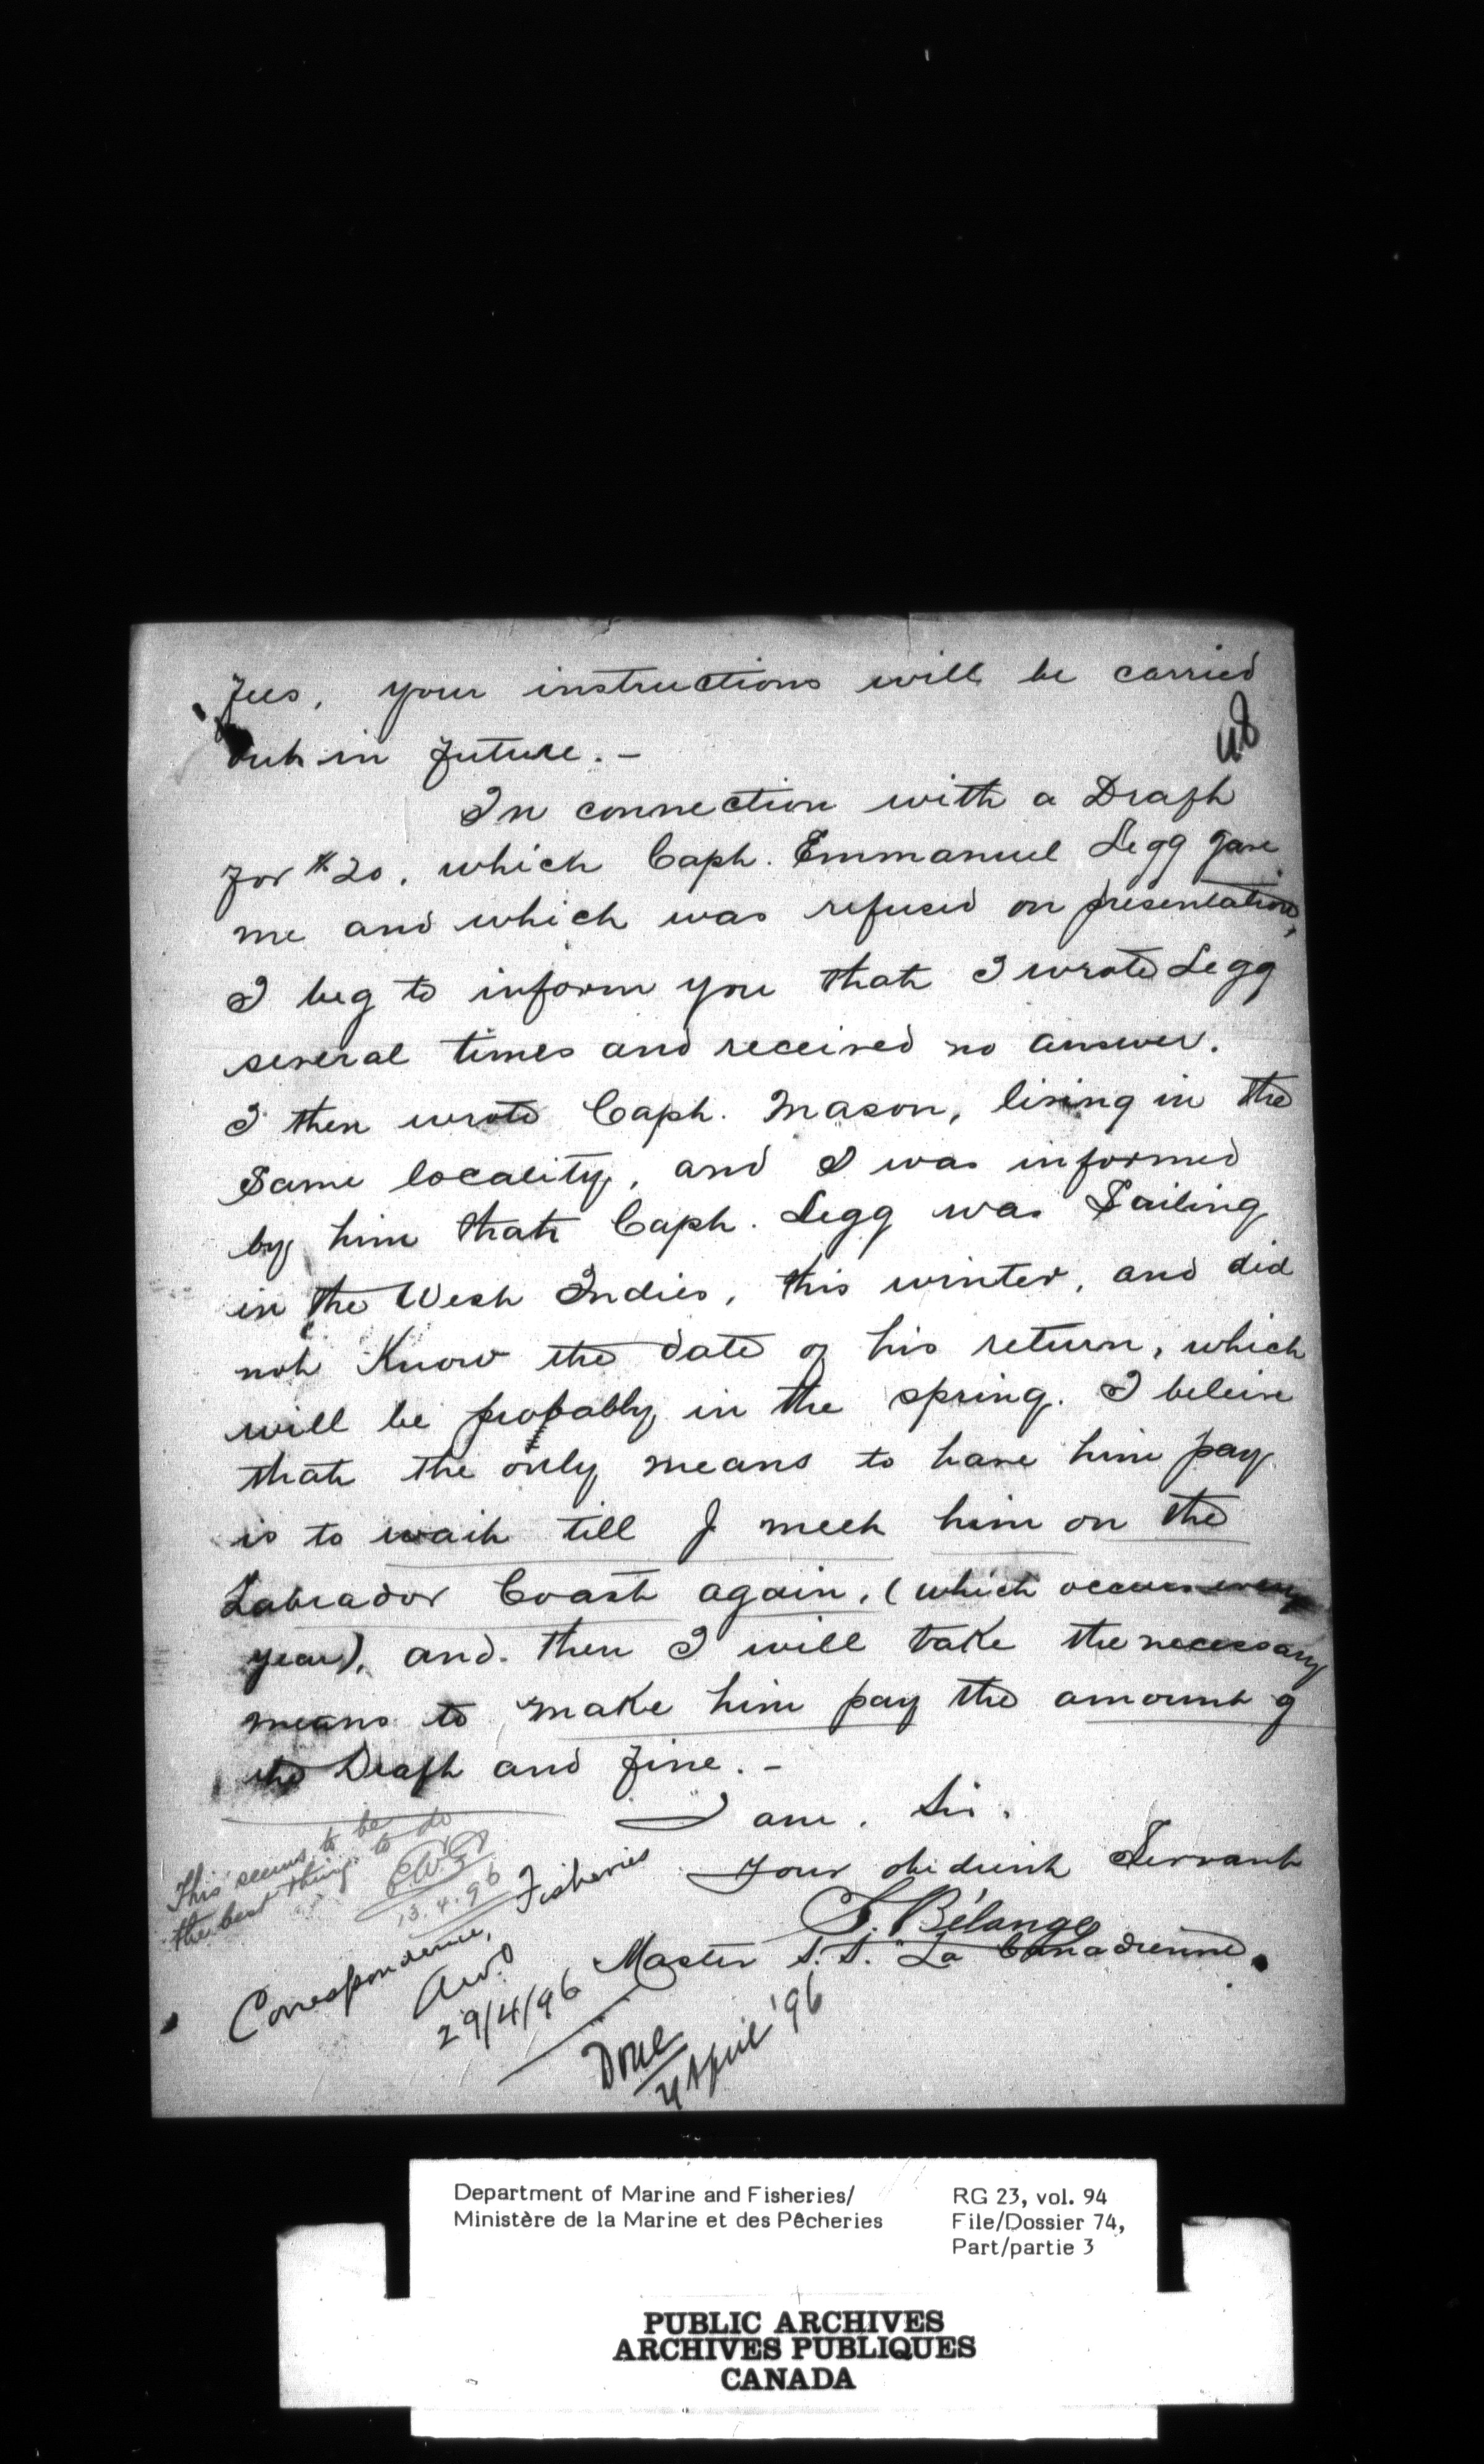 fees, your instructions will be carried
out in future. –
In connection with a Draft
for $20. which Capt. Emmanuel Legg gave
me and which was refused on presentation,
I beg to inform you that I wrote Legg
several times and received no answer.
I then wrote Capt. Mason, living in the
same locality, and I was informed
by him that Capt. Legg was Sailing
in the West Indies, this winter, and did
not Know the date of his return, which
will be probably in the spring. I beleive
that the only means to have him pay
is to wait till I meet him on the
Labrador Coast again, (which occurs every
year), and then I will take the necessary
means to make him pay the amount of
the Draft and fine. –
I am, Sir.
Your obedient Servant
S. Bélanger
Master S.S. "La Canadienne.
This seems to be
the best thing to do
13.4.96
Correspondence, Fisheries
29/4/96
Done
April '96
Department of Marine and Fisheries/
Ministère de la Marine et des Pêcheries
RG 23, vol. 94
File/Dossier 74,
Part/partie 3
PUBLIC ARCHIVES
ARCHIVES PUBLIQUES
CANADA